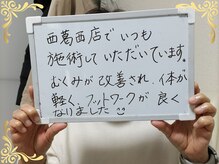 西葛西店でいつも
施術していただいています。
むくみが改善され、体が
軽く、フットワークが良く
なりました